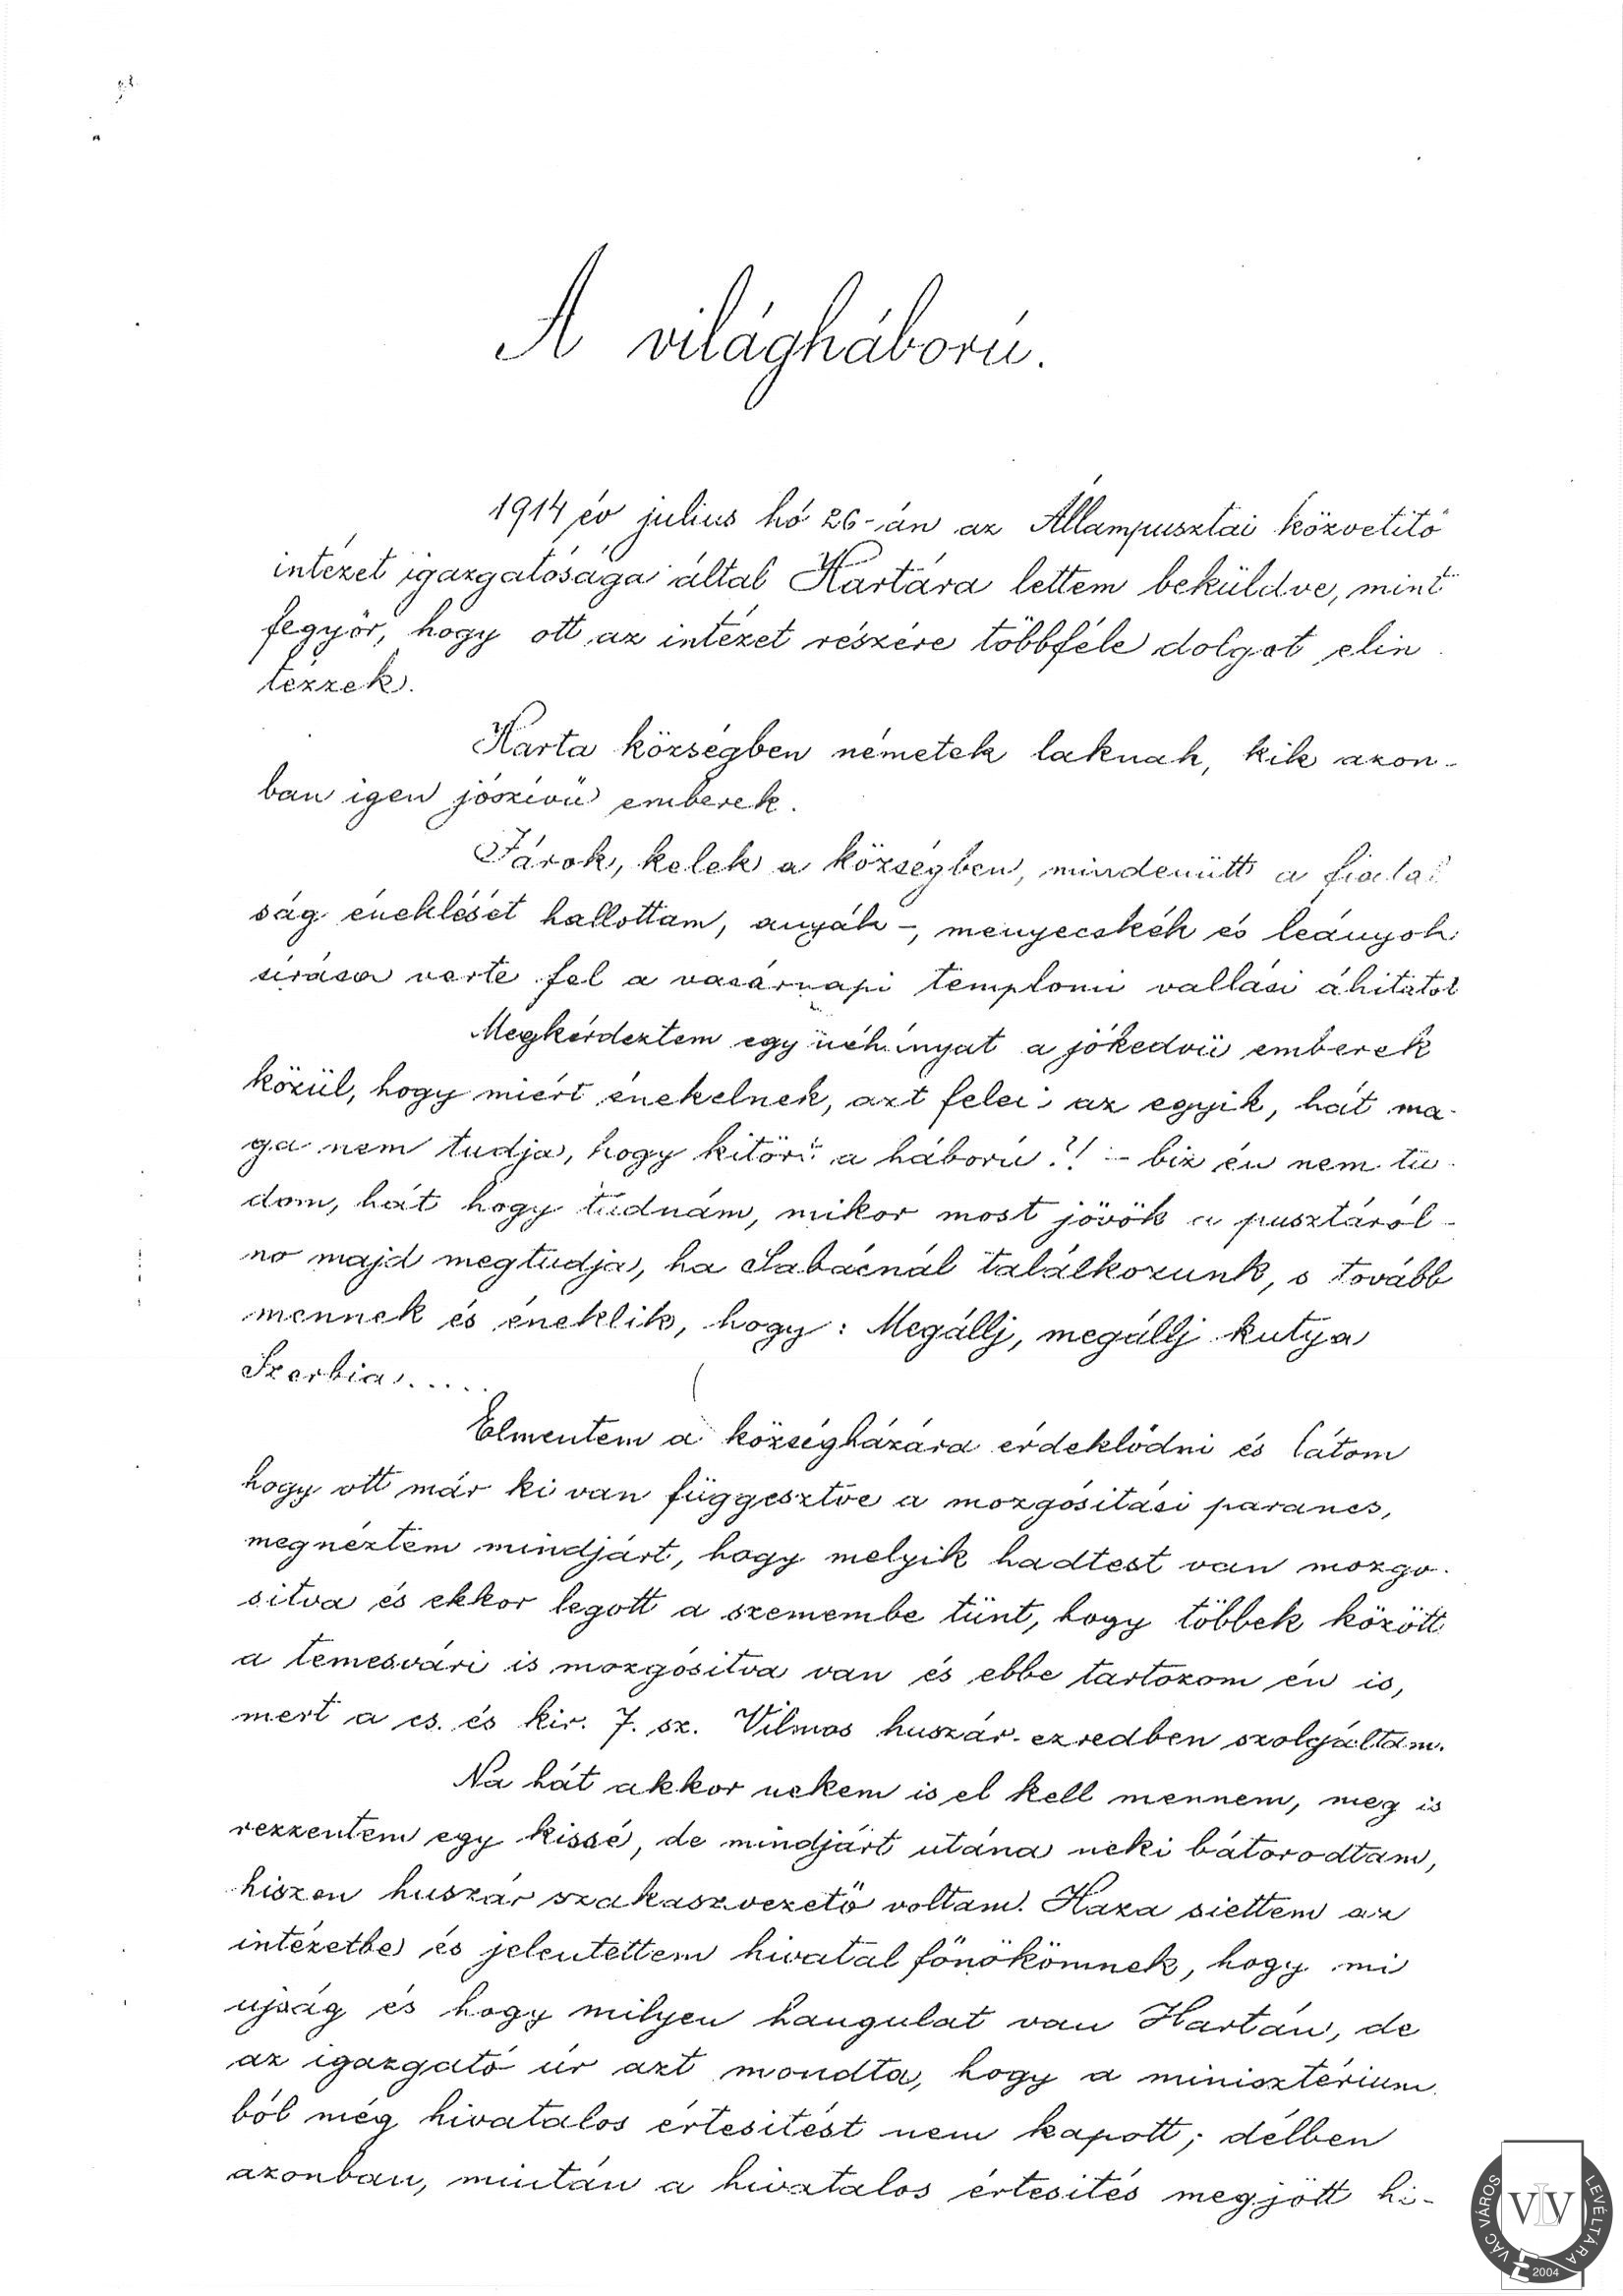 A világháború.
1914 év julius hó 26-án az Állampusztai közvetitő
intézet igazgatósága által Hartára lettem beküldve, mint
fegyőr, hogy ott az intézet részére többféle dolgot elin
tézzek.
Harta községben németek laknak, kik azon-
ban igen jószivü emberek.
Járok, kelek a községben, mindenütt a fiatal
ság éneklését hallottam, anyák-, menyecskék és leányok
sirása verte fel a vasárnapi templomi vallási áhitatot
Megkérdeztem egy néhányat a jókedvü emberek
közül, hogy miért énekelnek, azt felei az egyik, hát ma-
ga nem tudja, hogy kitört a háború?! - biz én nem tu-
dom, hát hogy tudnám, mikor most jövök a pusztáról -
no majd megtudja, ha Sabácnál találkozunk, s tovább
mennek és éneklik, hogy: Megállj, megállj kutya
Szerbia.....
Elmentem a községházára érdeklődni és látom
hogy ott már ki van függesztve a mozgósitási parancs,
megnéztem mindjárt, hogy melyik hadtest van mozgo-
sitva és ekkor legott a szemembe tünt, hogy többek között
a temesvári is mozgósitva van és ebbe tartozom én is,
mert a cs. és kir. 7. sz. Vilmos huszár-ezredben szolgáltam.
Na hát akkor nekem is el kell mennem, meg is
rezzentem egy kissé, de mindjárt utána neki bátorodtam,
hiszen huszár szakaszvezető voltam. Haza siettem az
intézetbe és jelentettem hivatal főnökömnek, hogy mi
ujság és hogy milyen hangulat van Hartán, de
az igazgató úr azt mondta, hogy a minisztérium
ból még hivatalos értesitést nem kapott; délben
azonban, miután a hivatalos értesités megjött hi-
VÁC VÁROS LEVÉLTÁRA
VLV
2004